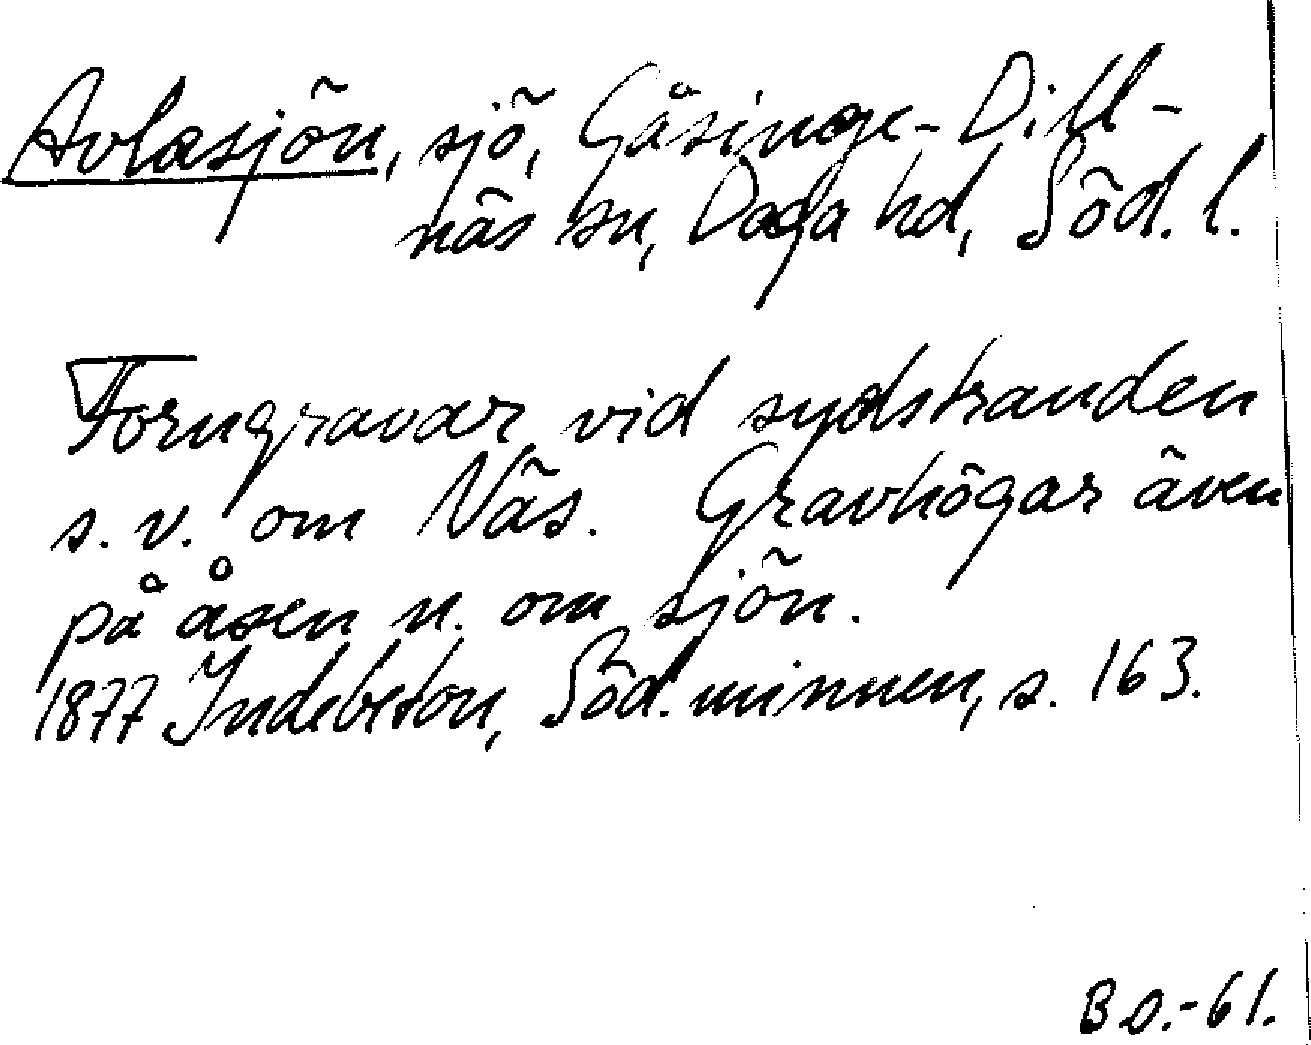 Avlasjön, sjö, Gåsinge-Dill-
näs sn, Daga hd, Söd. l.
Forngravar vid sydstranden
s.v. om Näs. Gravhögar även
på åsen n. om sjön.
1877 Indebetou, Söd. minnen, s. 163.
B.O.-61.